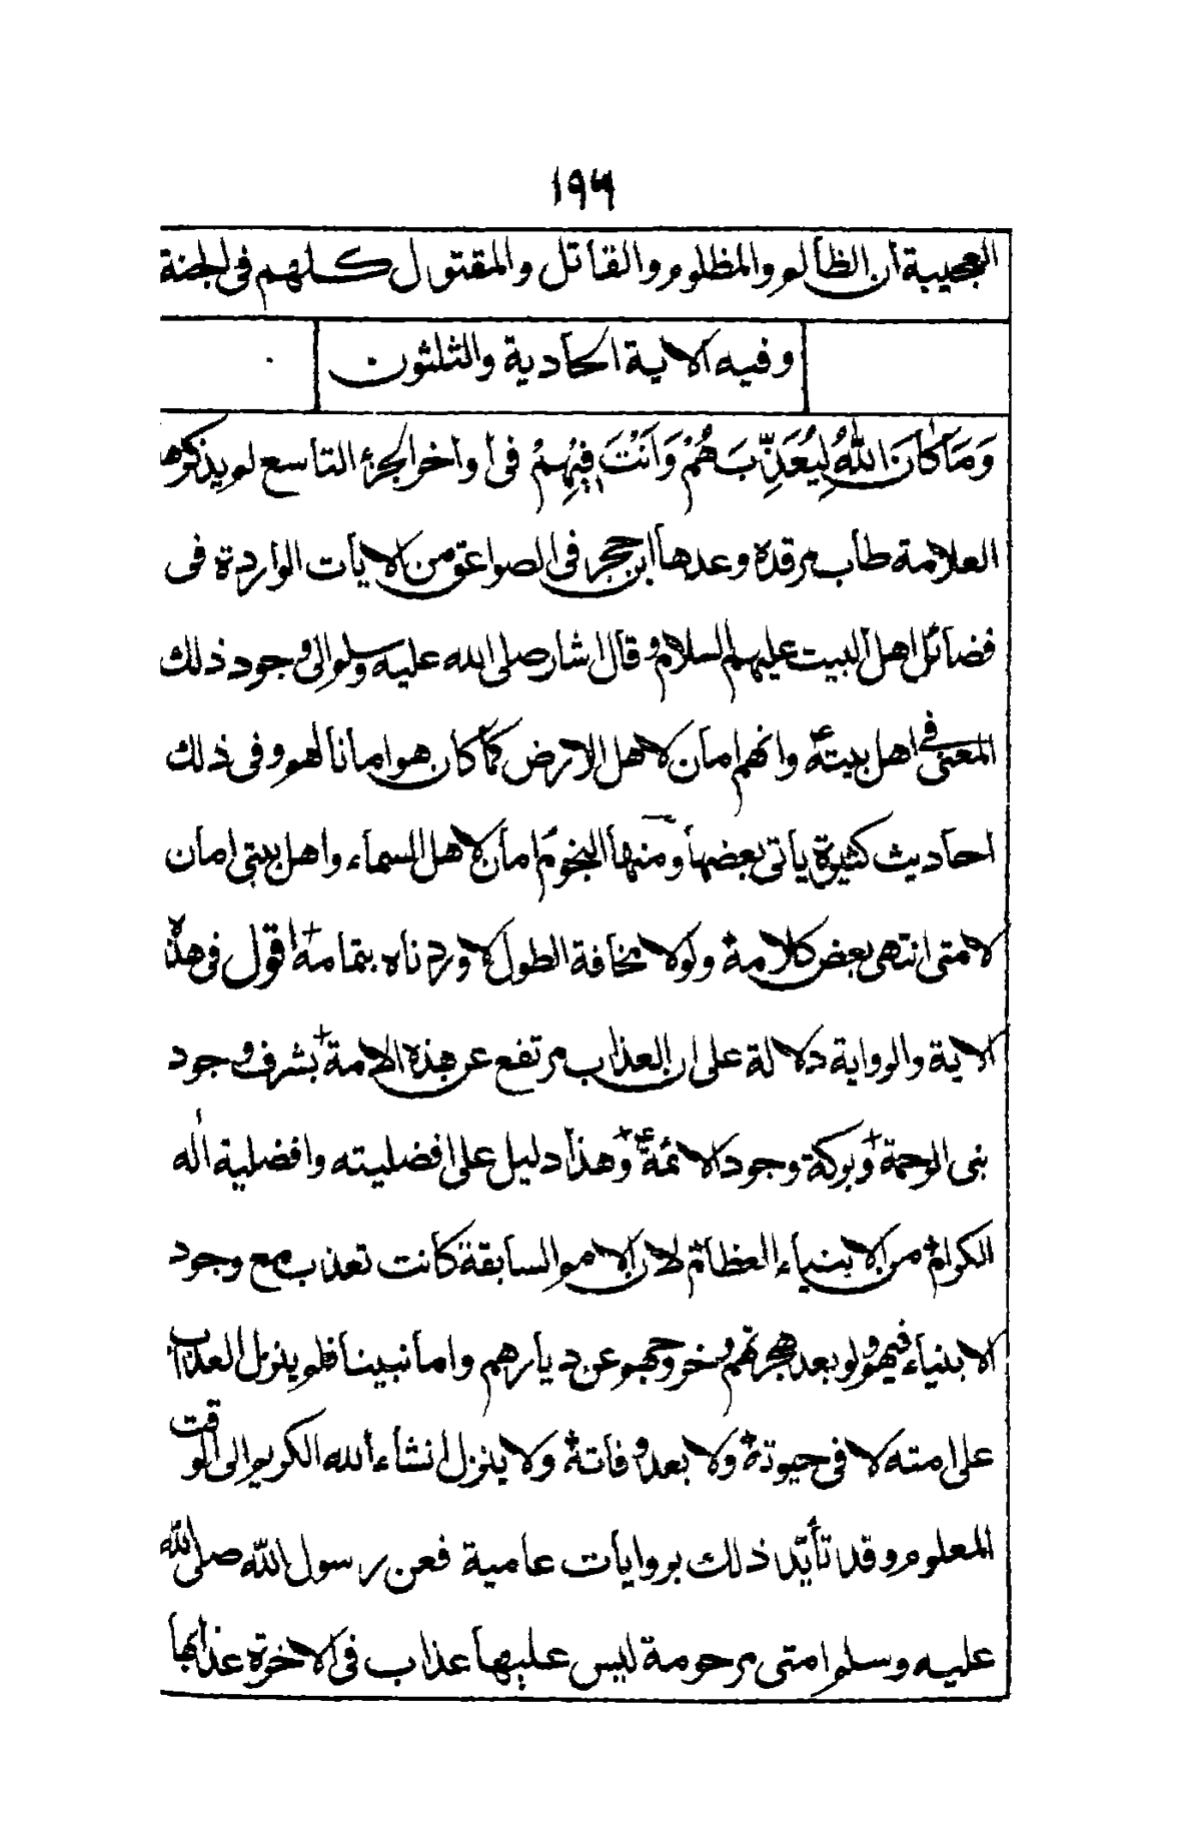 ١٩٦
العجيبة ان الظالم والمظلوم والقاتل والمقتول كلهم فى الجنة
وفيه الاية الحادية والثلثون
وَمَا كَانَ اللّٰهُ لِيُعَذِّبَهُمْ وَاَنْتَ فِيْهِمْ فى اواخر الجزء التاسع لم يذكرها
العلامة طاب مرقده وعدها ابن حجر فى الصواعق من الايات الواردة فى
فضائل اهل البيت عليهم السلام وقال اشار صلى الله عليه وسلم الى وجود ذلك
المعنى فى اهل بيته وانهم امان لاهل الارض كما كان هو امانا لهم وفى ذلك
احاديث كثيرة ياتى بعضها ومنها النجوم امان لاهل السماء واهل بيتى امان
لامتى انتهى بعض كلامه ولولا مخافة الطول لاوردناه بتمامه اقول فى هذه
الاية والرواية دلالة على ان العذاب مرتفع عن هذه الامة بشرف وجود
نبى الرحمة وبركة وجود الائمة وهذا دليل على افضليته وافضلية اٰله
الكرام من الانبياء العظام لان الامم السابقة كانت تعذب مع وجود
الانبياء فيهم ولو بعد هجرتهم وخروجهم عن ديارهم واما نبينا فلم ينزل العذاب
على امته لا فى حيوته ولا بعد وفاته ولا ينزل انشاء الله الكريم الى الوقت
المعلوم وقد تأيّد ذلك بروايات عامية فعن رسول اللّه صلى اللّه
عليه وسلم امتى مرحومة ليس عليها عذاب فى الاخرة عذابها